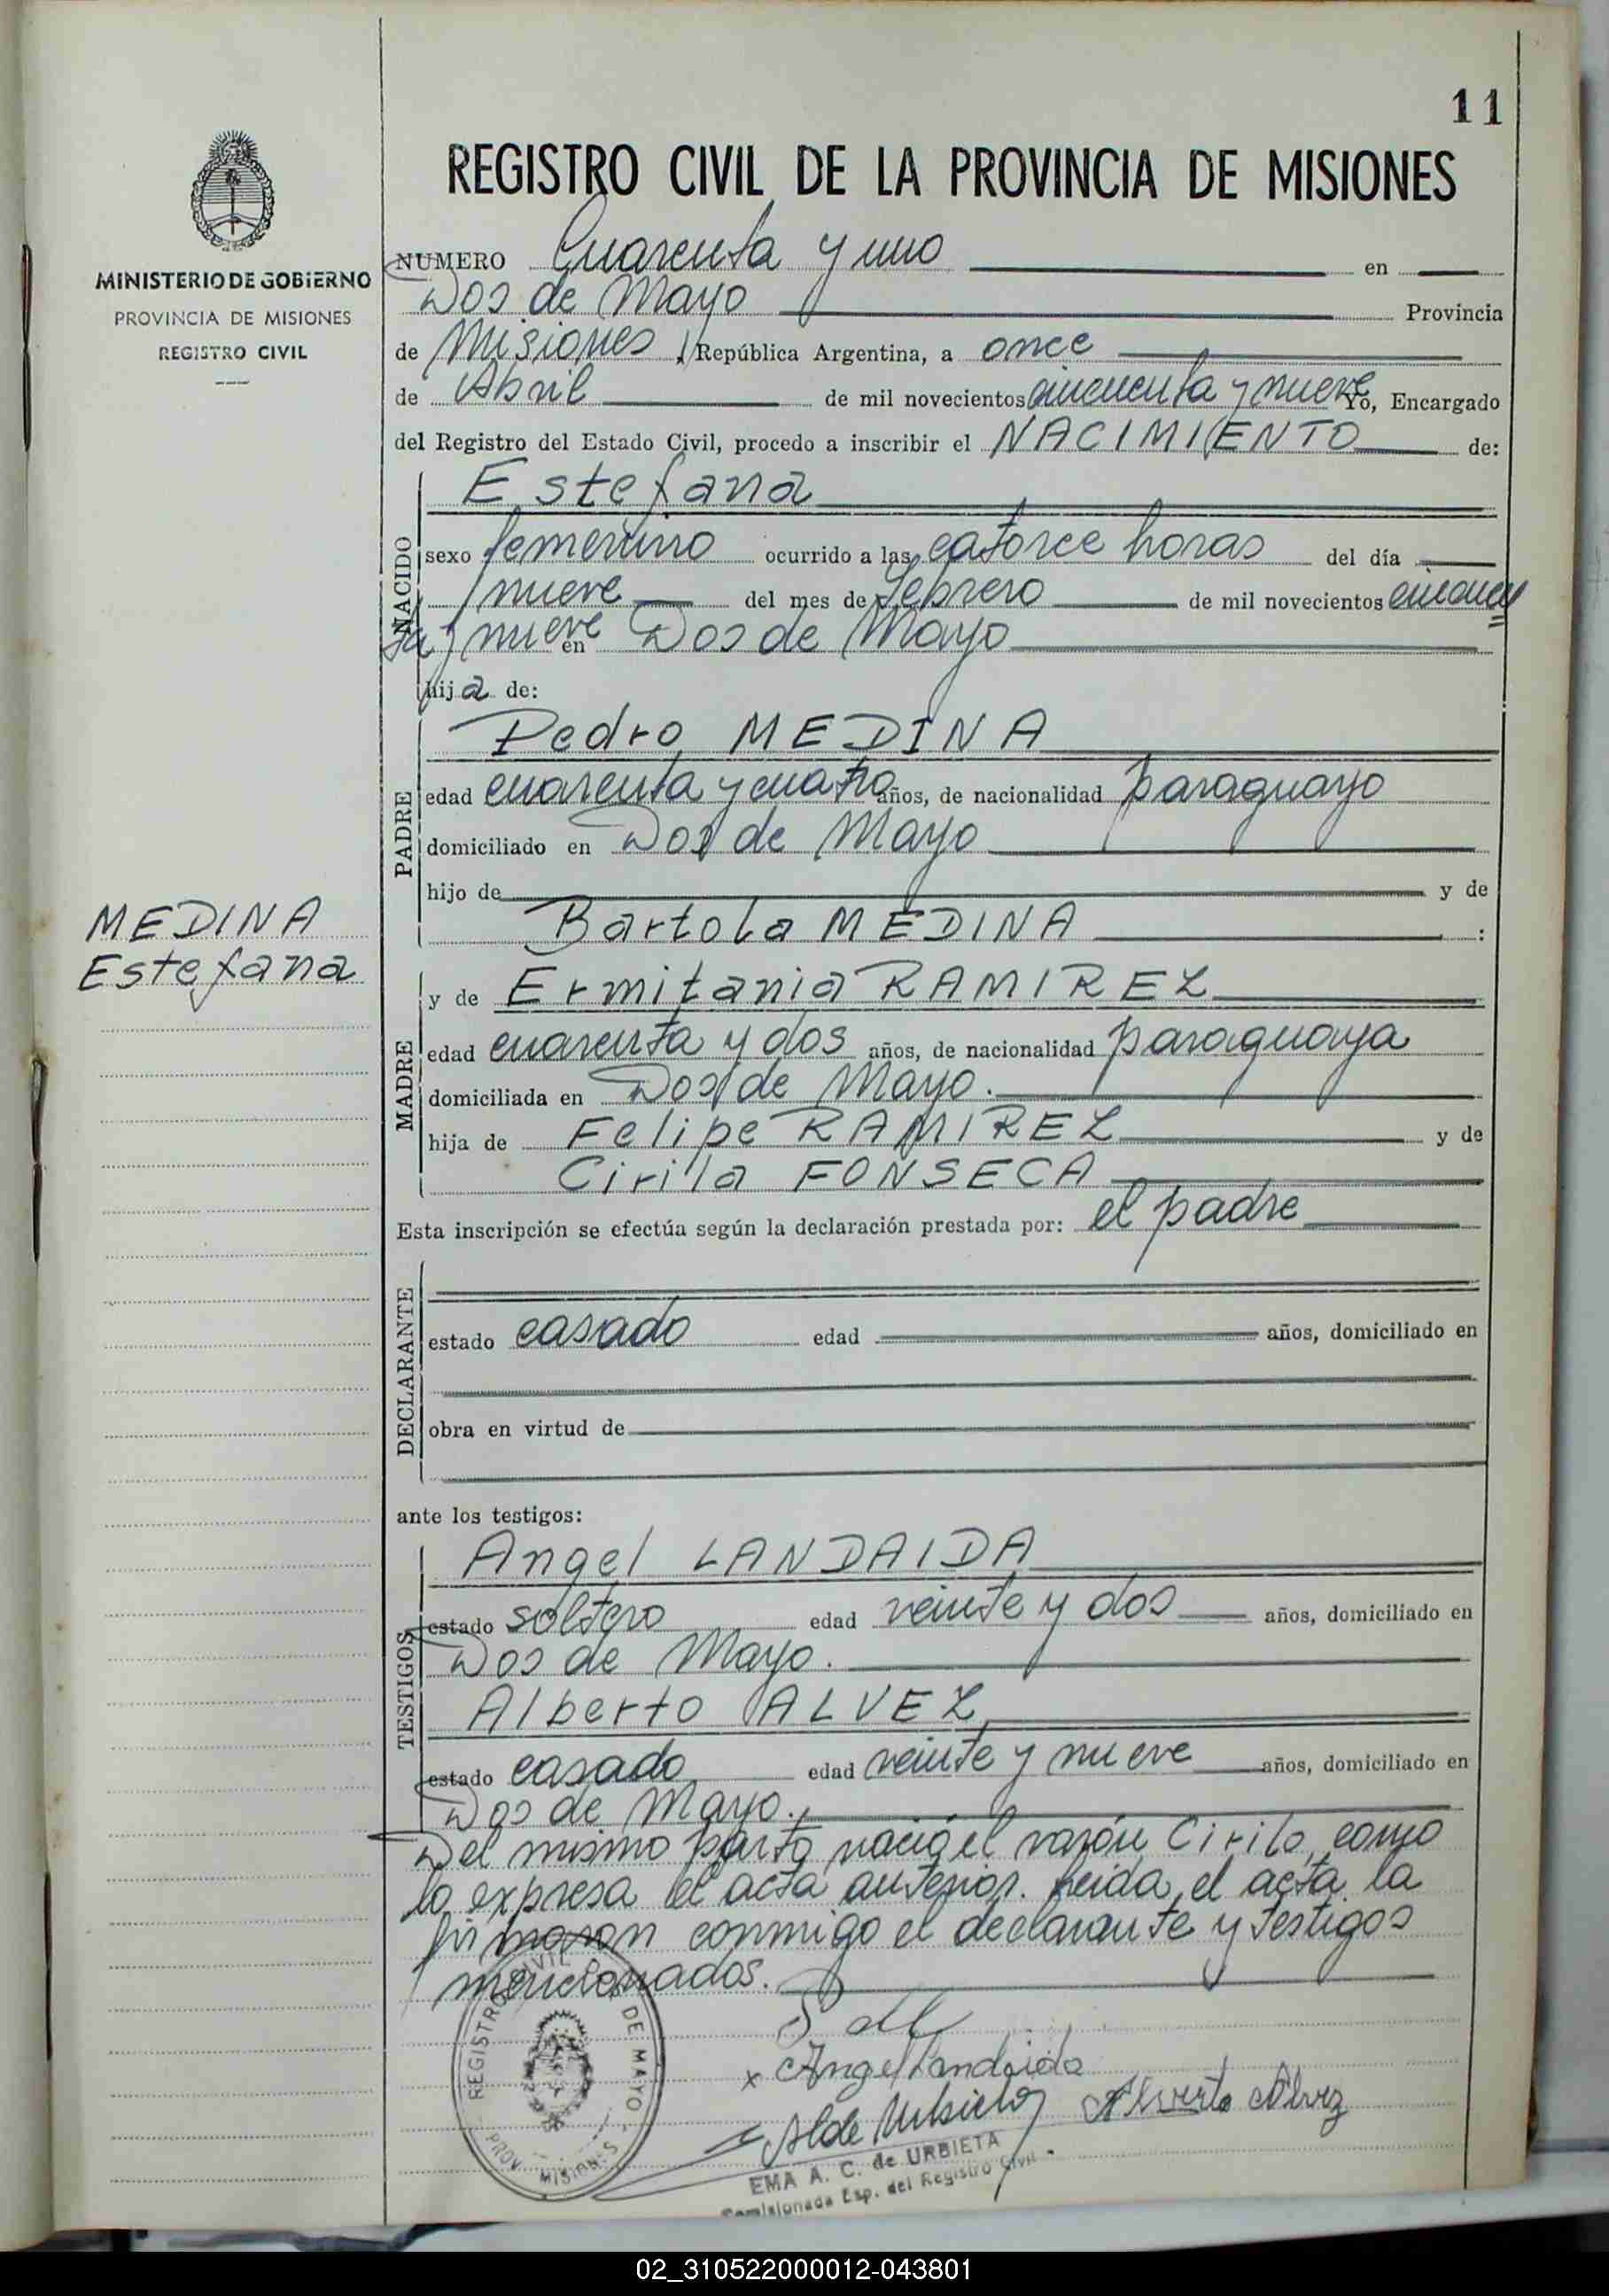 11
REGISTRO CIVIL DE LA PROVINCIA DE MISIONES
MINISTERIO DE GOBIERNO
PROVINCIA DE MISIONES
REGISTRO CIVIL
NUMERO Cuarenta y uno en
Dos de Mayo Provincia
de Misiones, República Argentina, a once
de Abril de mil novecientos cincuenta y nueve Yo, Encargado
del Registro del Estado Civil, procedo a inscribir el NACIMIENTO de:
NACIDO
Estefana
sexo femenino ocurrido a las catorce horas del día
nueve del mes de Febrero de mil novecientos cincuen
ta y nueve en Dos de Mayo
hija de:
PADRE
Pedro MEDINA
edad cuarenta y cuatro años, de nacionalidad paraguayo
domiciliado en Dos de Mayo
hijo de y de
Bartola MEDINA :
MEDINA
Estefana
MADRE
y de Ermitania RAMIREZ
edad cuarenta y dos años, de nacionalidad paraguaya
domiciliada en Dos de Mayo.
hija de Felipe RAMIREZ y de
Cirila FONSECA
Esta inscripción se efectúa según la declaración prestada por: el padre
DECLARANTE
estado casado edad años, domiciliado en
obra en virtud de
ante los testigos:
TESTIGOS
Angel LANDAIDA
estado soltero edad veinte y dos años, domiciliado en
Dos de Mayo.
Alberto ALVEZ
estado casado edad veinte y nueve años, domiciliado en
Dos de Mayo.
Del mismo parto nació el varón Cirilo, como
lo expresa el acta anterior. Leida el acta la
firmaron conmigo el declarante y testigos
mencionados.
REGISTRO CIVIL DOS DE MAYO
PROV. MISIONES
x Angel Landaida
Alverto Alvez
EMA A. C. de URBIETA
Comisionada Esp. del Registro Civil
02_310522000012-043801